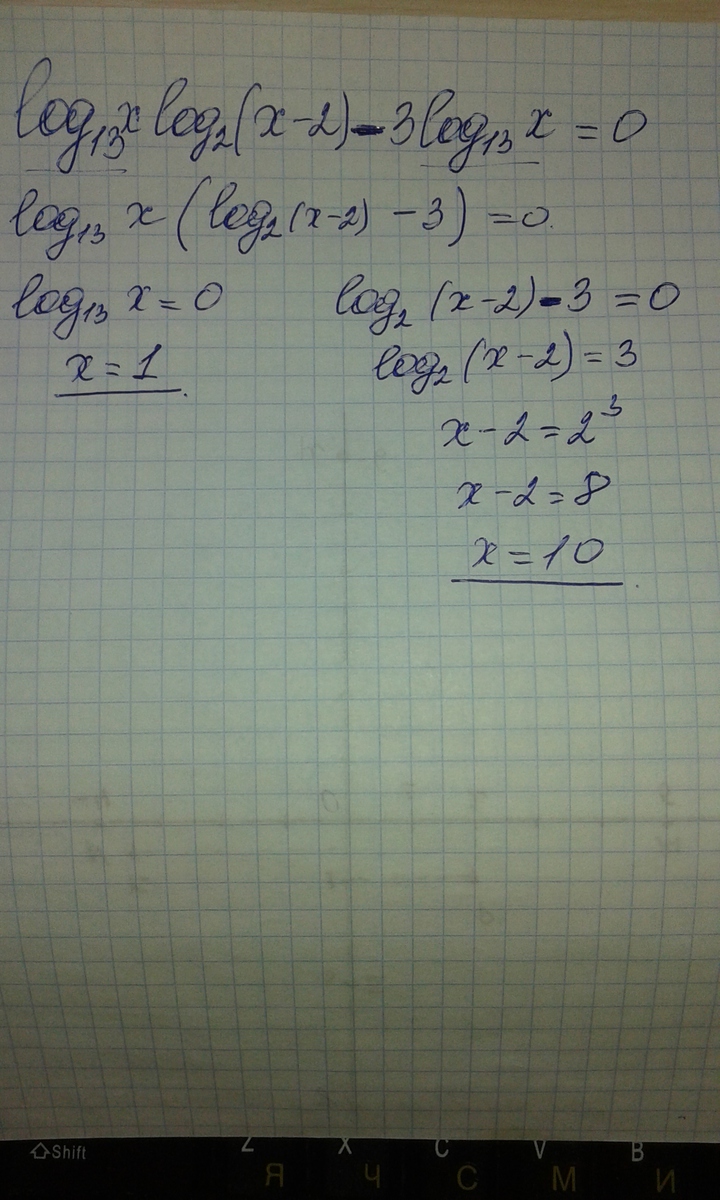 log₁₃x log₂(x-2)-3log₁₃x = 0
log₁₃ x (log₂(x-2) -3) = 0.
log₁₃ x = 0
x = 1
log₂ (x-2)-3 = 0
log₂ (x-2) = 3
x-2 = 2³
x-2 = 8
x = 10
Shift Z X C V B
Я Ч С М И